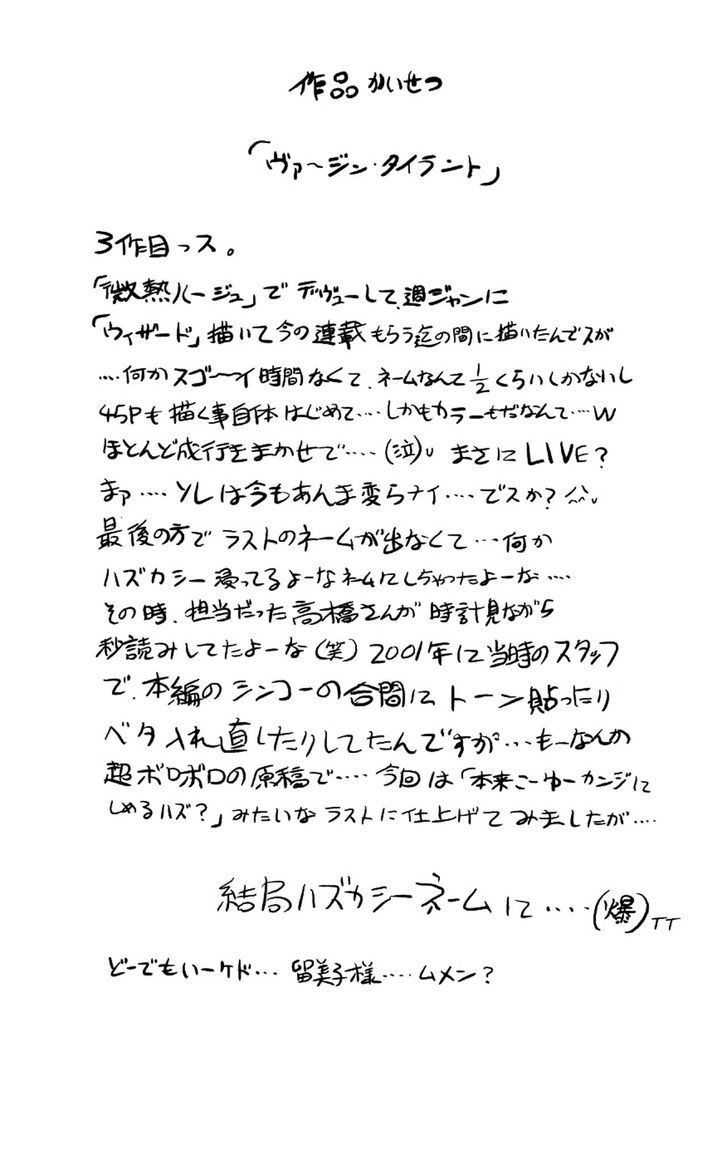 作品かいせつ
「ヴァ〜ジン・タイラント」
3作目っス。
「微熱ルージュ」でデヴューして、週ジャンに
「ウィザード」描いて今の連載もらう迄の間に描いたんでスが
‥‥何かスゴ〜イ時間なくて、ネームなんて1/2くらいしかないし
45Pも描く事自体はじめて‥‥しかもカラーもだなんて…w
ほとんど成行きまかせで‥‥(泣)。まさにLIVE?
まァ‥‥ソレは今もあんま変らナイ‥‥でスか?^^;
最後の方でラストのネームが出なくて…何か
ハズカシー浸ってるよーなネームにしちゃったよーな‥‥
その時、担当だった高橋さんが時計見ながら
秒読みしてたよーな(笑)2001年に当時のスタッフ
で、本編のシンコーの合間にトーン貼ったり
ベタ入れ直したりしてたんですが…もーなんか
超ボロボロの原稿で‥‥今回は「本来こーゆーカンジに
しめるハズ?」みたいなラストに仕上げてみましたが‥‥
結局ハズカシーネームに‥‥(爆)TT
どーでもいーケド…留美子様‥‥ムメン?